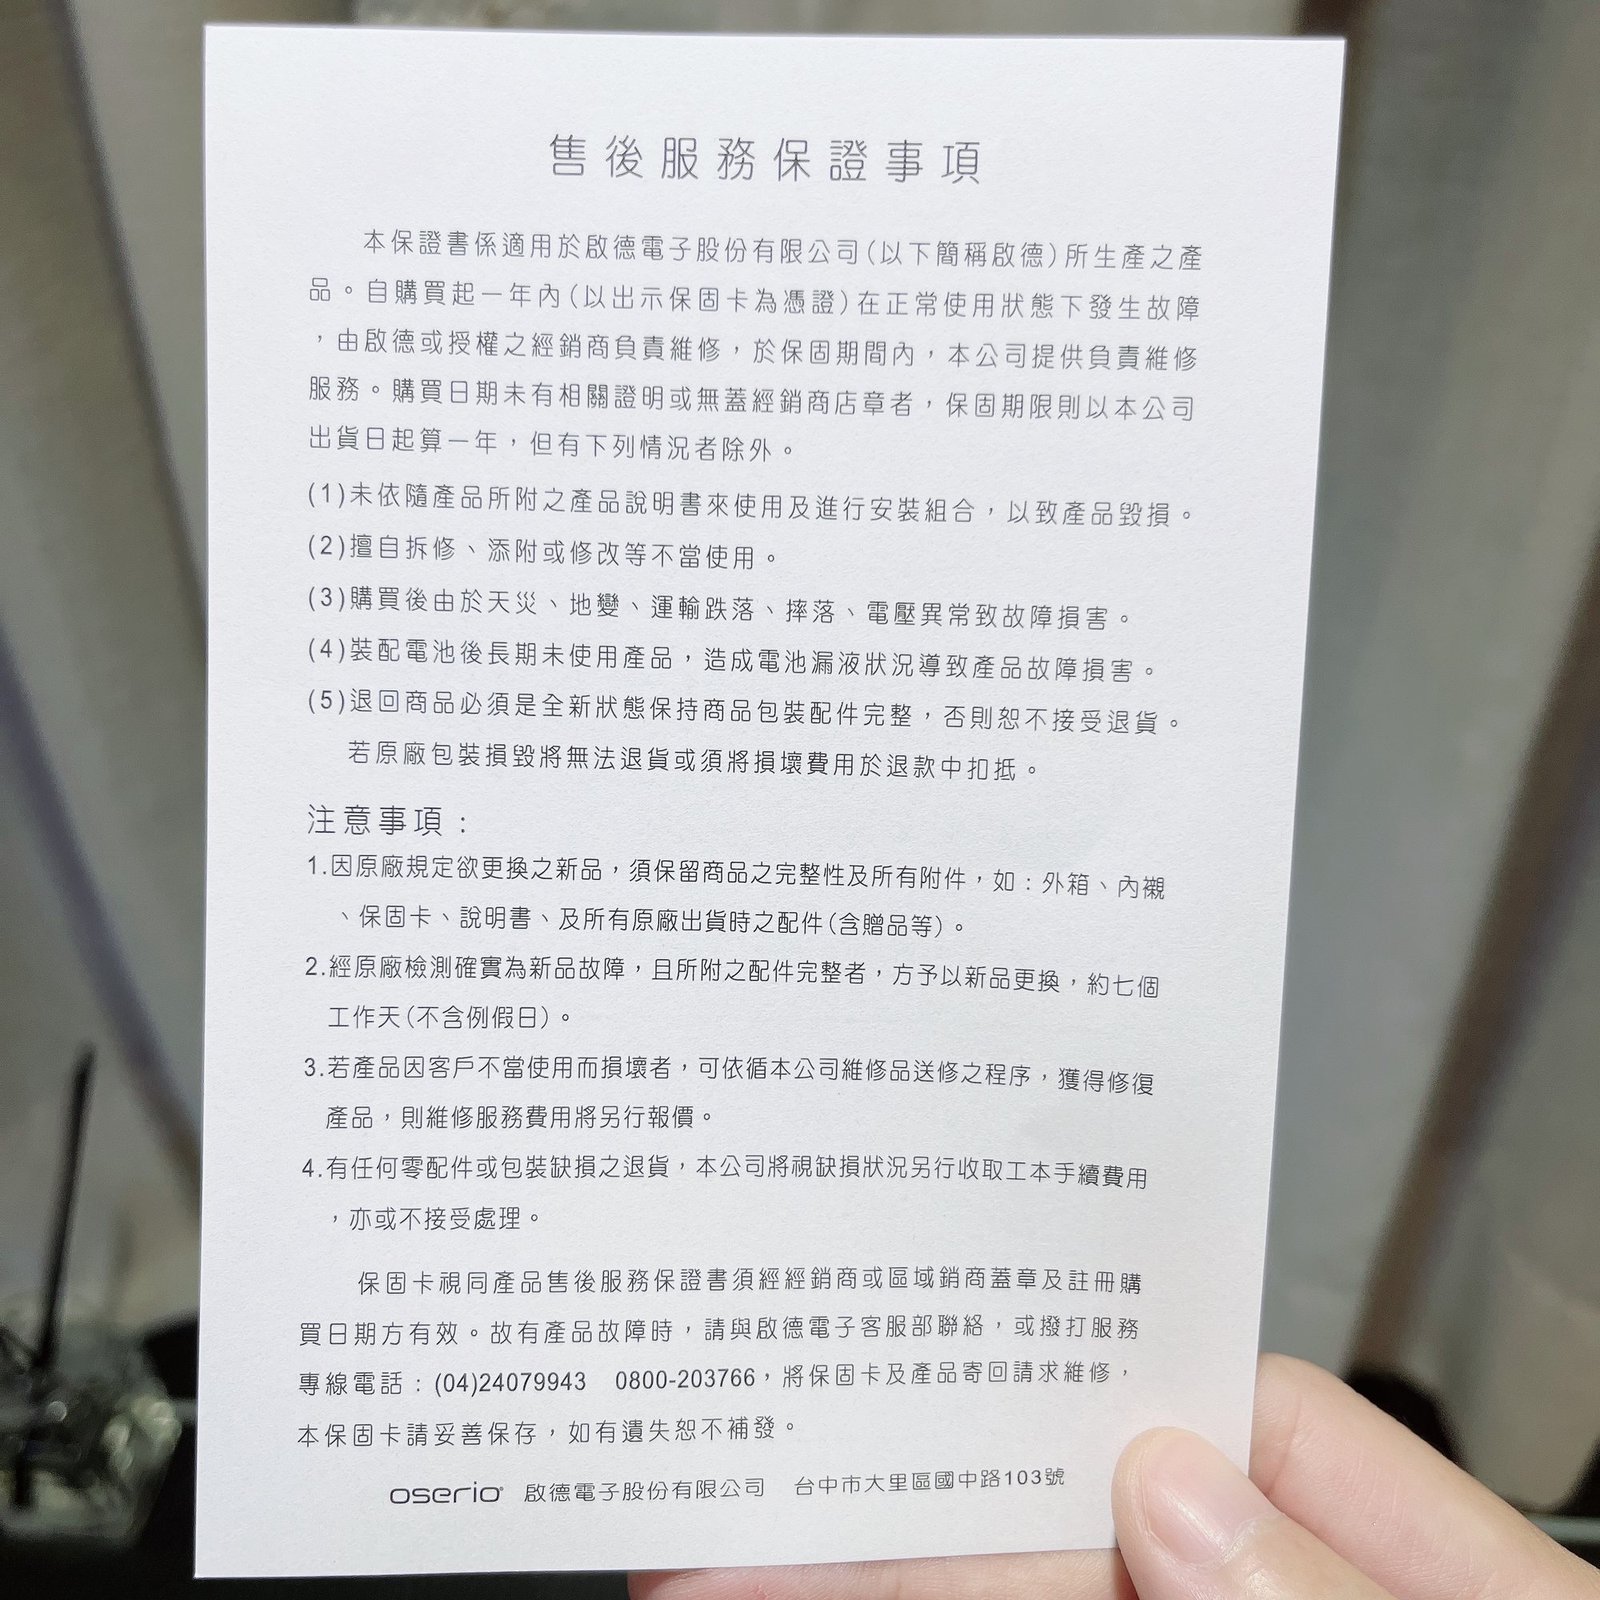 售後服務保證事項
本保證書係適用於啟德電子股份有限公司(以下簡稱啟德)所生產之產
品。自購買起一年內(以出示保固卡為憑證)在正常使用狀態下發生故障
，由啟德或授權之經銷商負責維修，於保固期間內，本公司提供負責維修
服務。購買日期未有相關證明或無蓋經銷商店章者，保固期限則以本公司
出貨日起算一年，但有下列情況者除外。
(1)未依隨產品所附之產品說明書來使用及進行安裝組合，以致產品毀損。
(2)擅自拆修、添附或修改等不當使用。
(3)購買後由於天災、地變、運輸跌落、摔落、電壓異常致故障損害。
(4)裝配電池後長期未使用產品，造成電池漏液狀況導致產品故障損害。
(5)退回商品必須是全新狀態保持商品包裝配件完整，否則恕不接受退貨。
若原廠包裝損毀將無法退貨或須將損壞費用於退款中扣抵。
注意事項：
1.因原廠規定欲更換之新品，須保留商品之完整性及所有附件，如：外箱、內襯
、保固卡、說明書、及所有原廠出貨時之配件(含贈品等)。
2.經原廠檢測確實為新品故障，且所附之配件完整者，方予以新品更換，約七個
工作天(不含例假日)。
3.若產品因客戶不當使用而損壞者，可依循本公司維修品送修之程序，獲得修復
產品，則維修服務費用將另行報價。
4.有任何零配件或包裝缺損之退貨，本公司將視缺損狀況另行收取工本手續費用
，亦或不接受處理。
保固卡視同產品售後服務保證書須經經銷商或區域銷商蓋章及註冊購
買日期方有效。故有產品故障時，請與啟德電子客服部聯絡，或撥打服務
專線電話：(04)24079943 0800-203766，將保固卡及產品寄回請求維修，
本保固卡請妥善保存，如有遺失恕不補發。
oserio 啟德電子股份有限公司 台中市大里區國中路103號